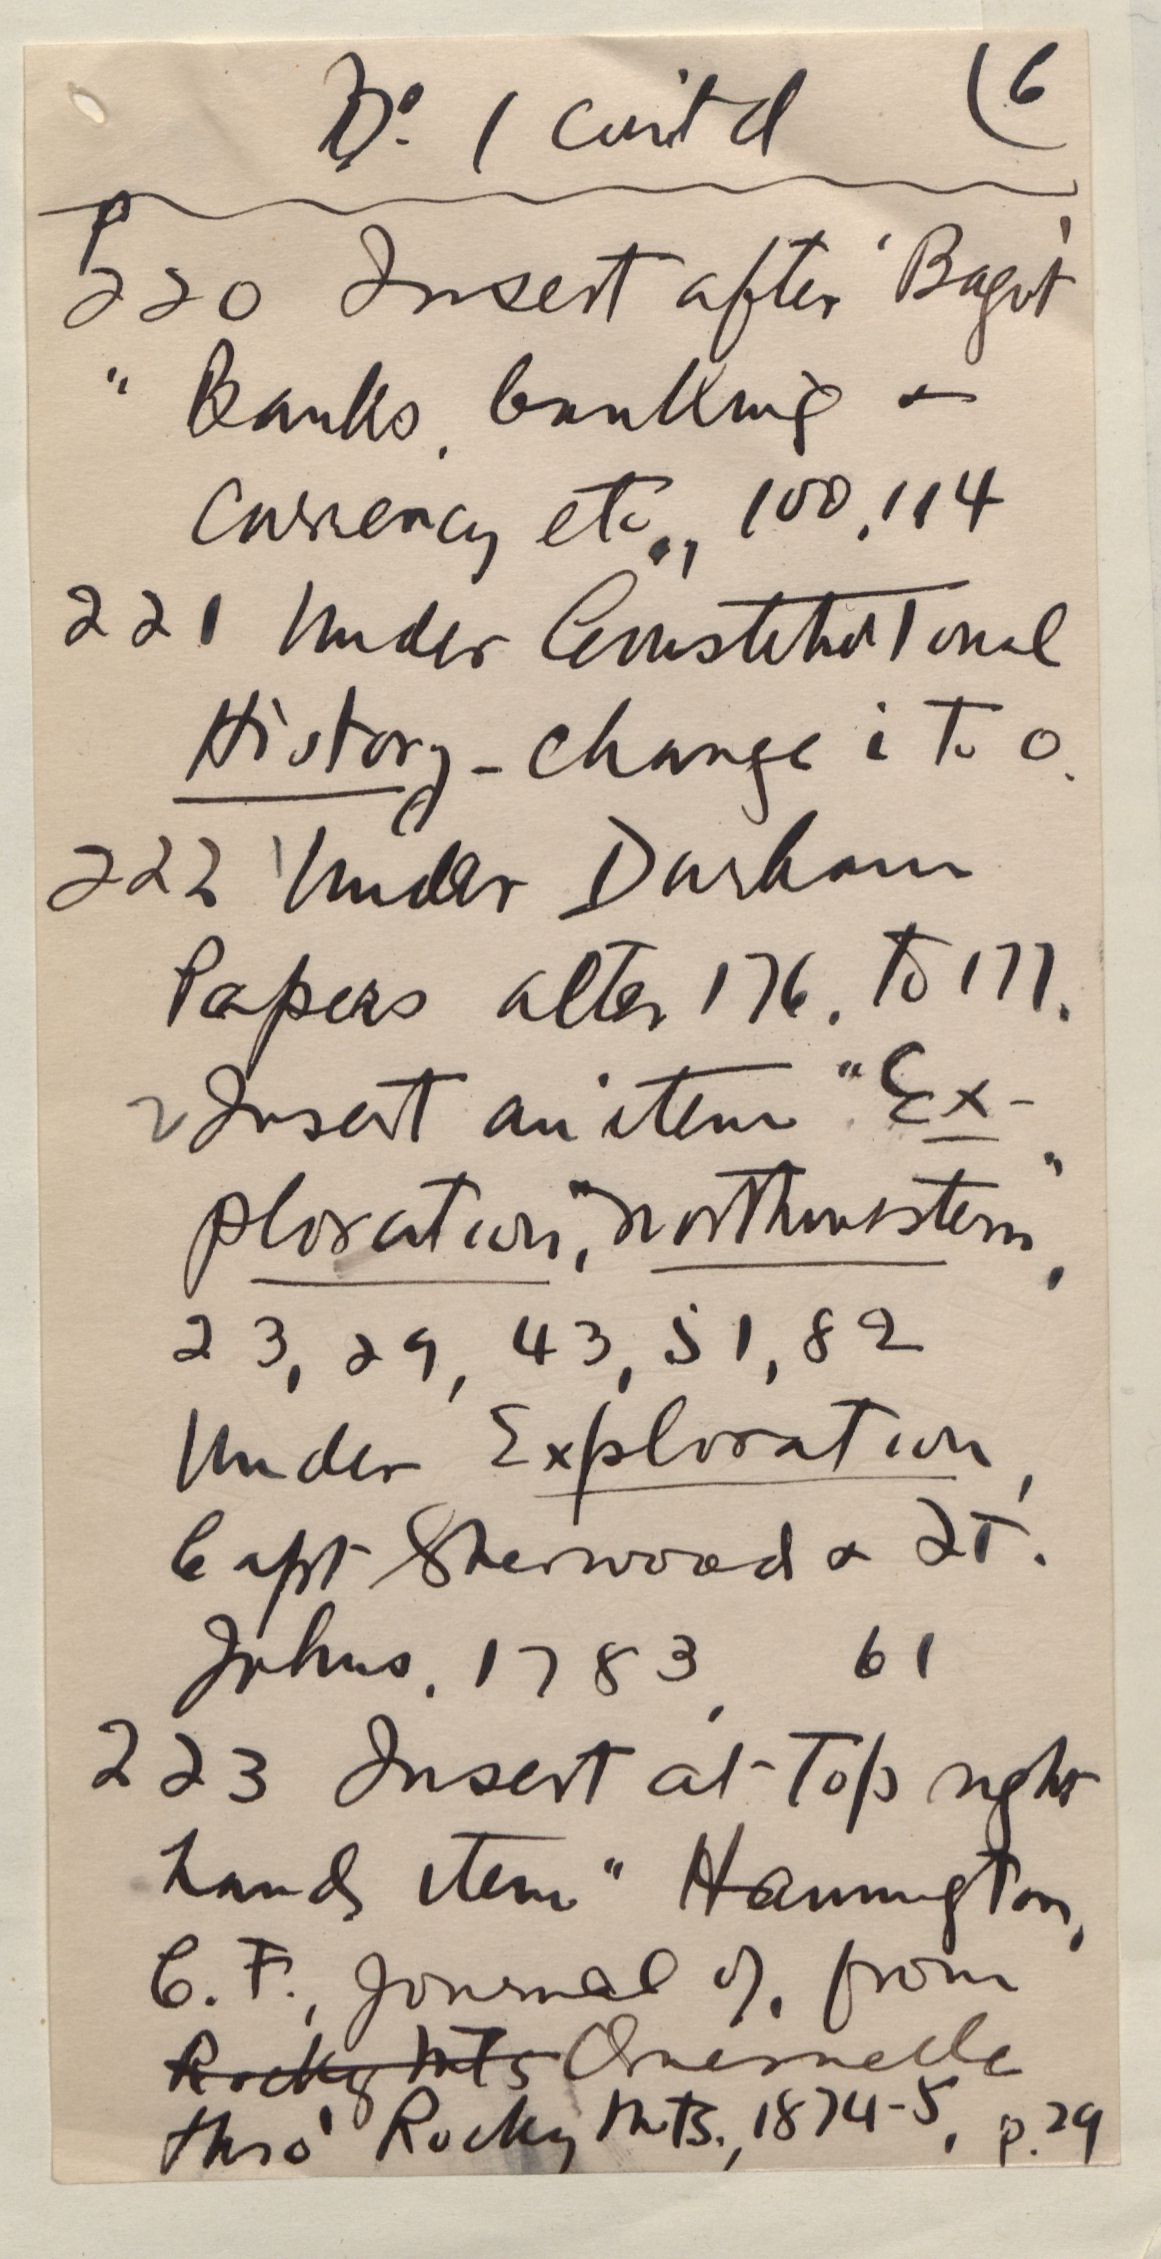 Do. 1 cont'd (6
P
220 Insert after 'Bagot'
" Banks, banking &
Currency etc., 100, 114
221 Under Constitutional
History - change i to o.
222 Under Durham
Papers alter 176. to 177.
Insert an item "Ex-
ploration," "northwestern",
23, 29, 43, 51, 82
Under Exploration,
Capt Sherwood & Lt.
Johns, 1783, 61
223 Insert at top right
hand item " Hannington,
C. F., Journal of, from
Rocky Mts Quesnelle
thro' Rocky Mts., 1874-5, p. 29